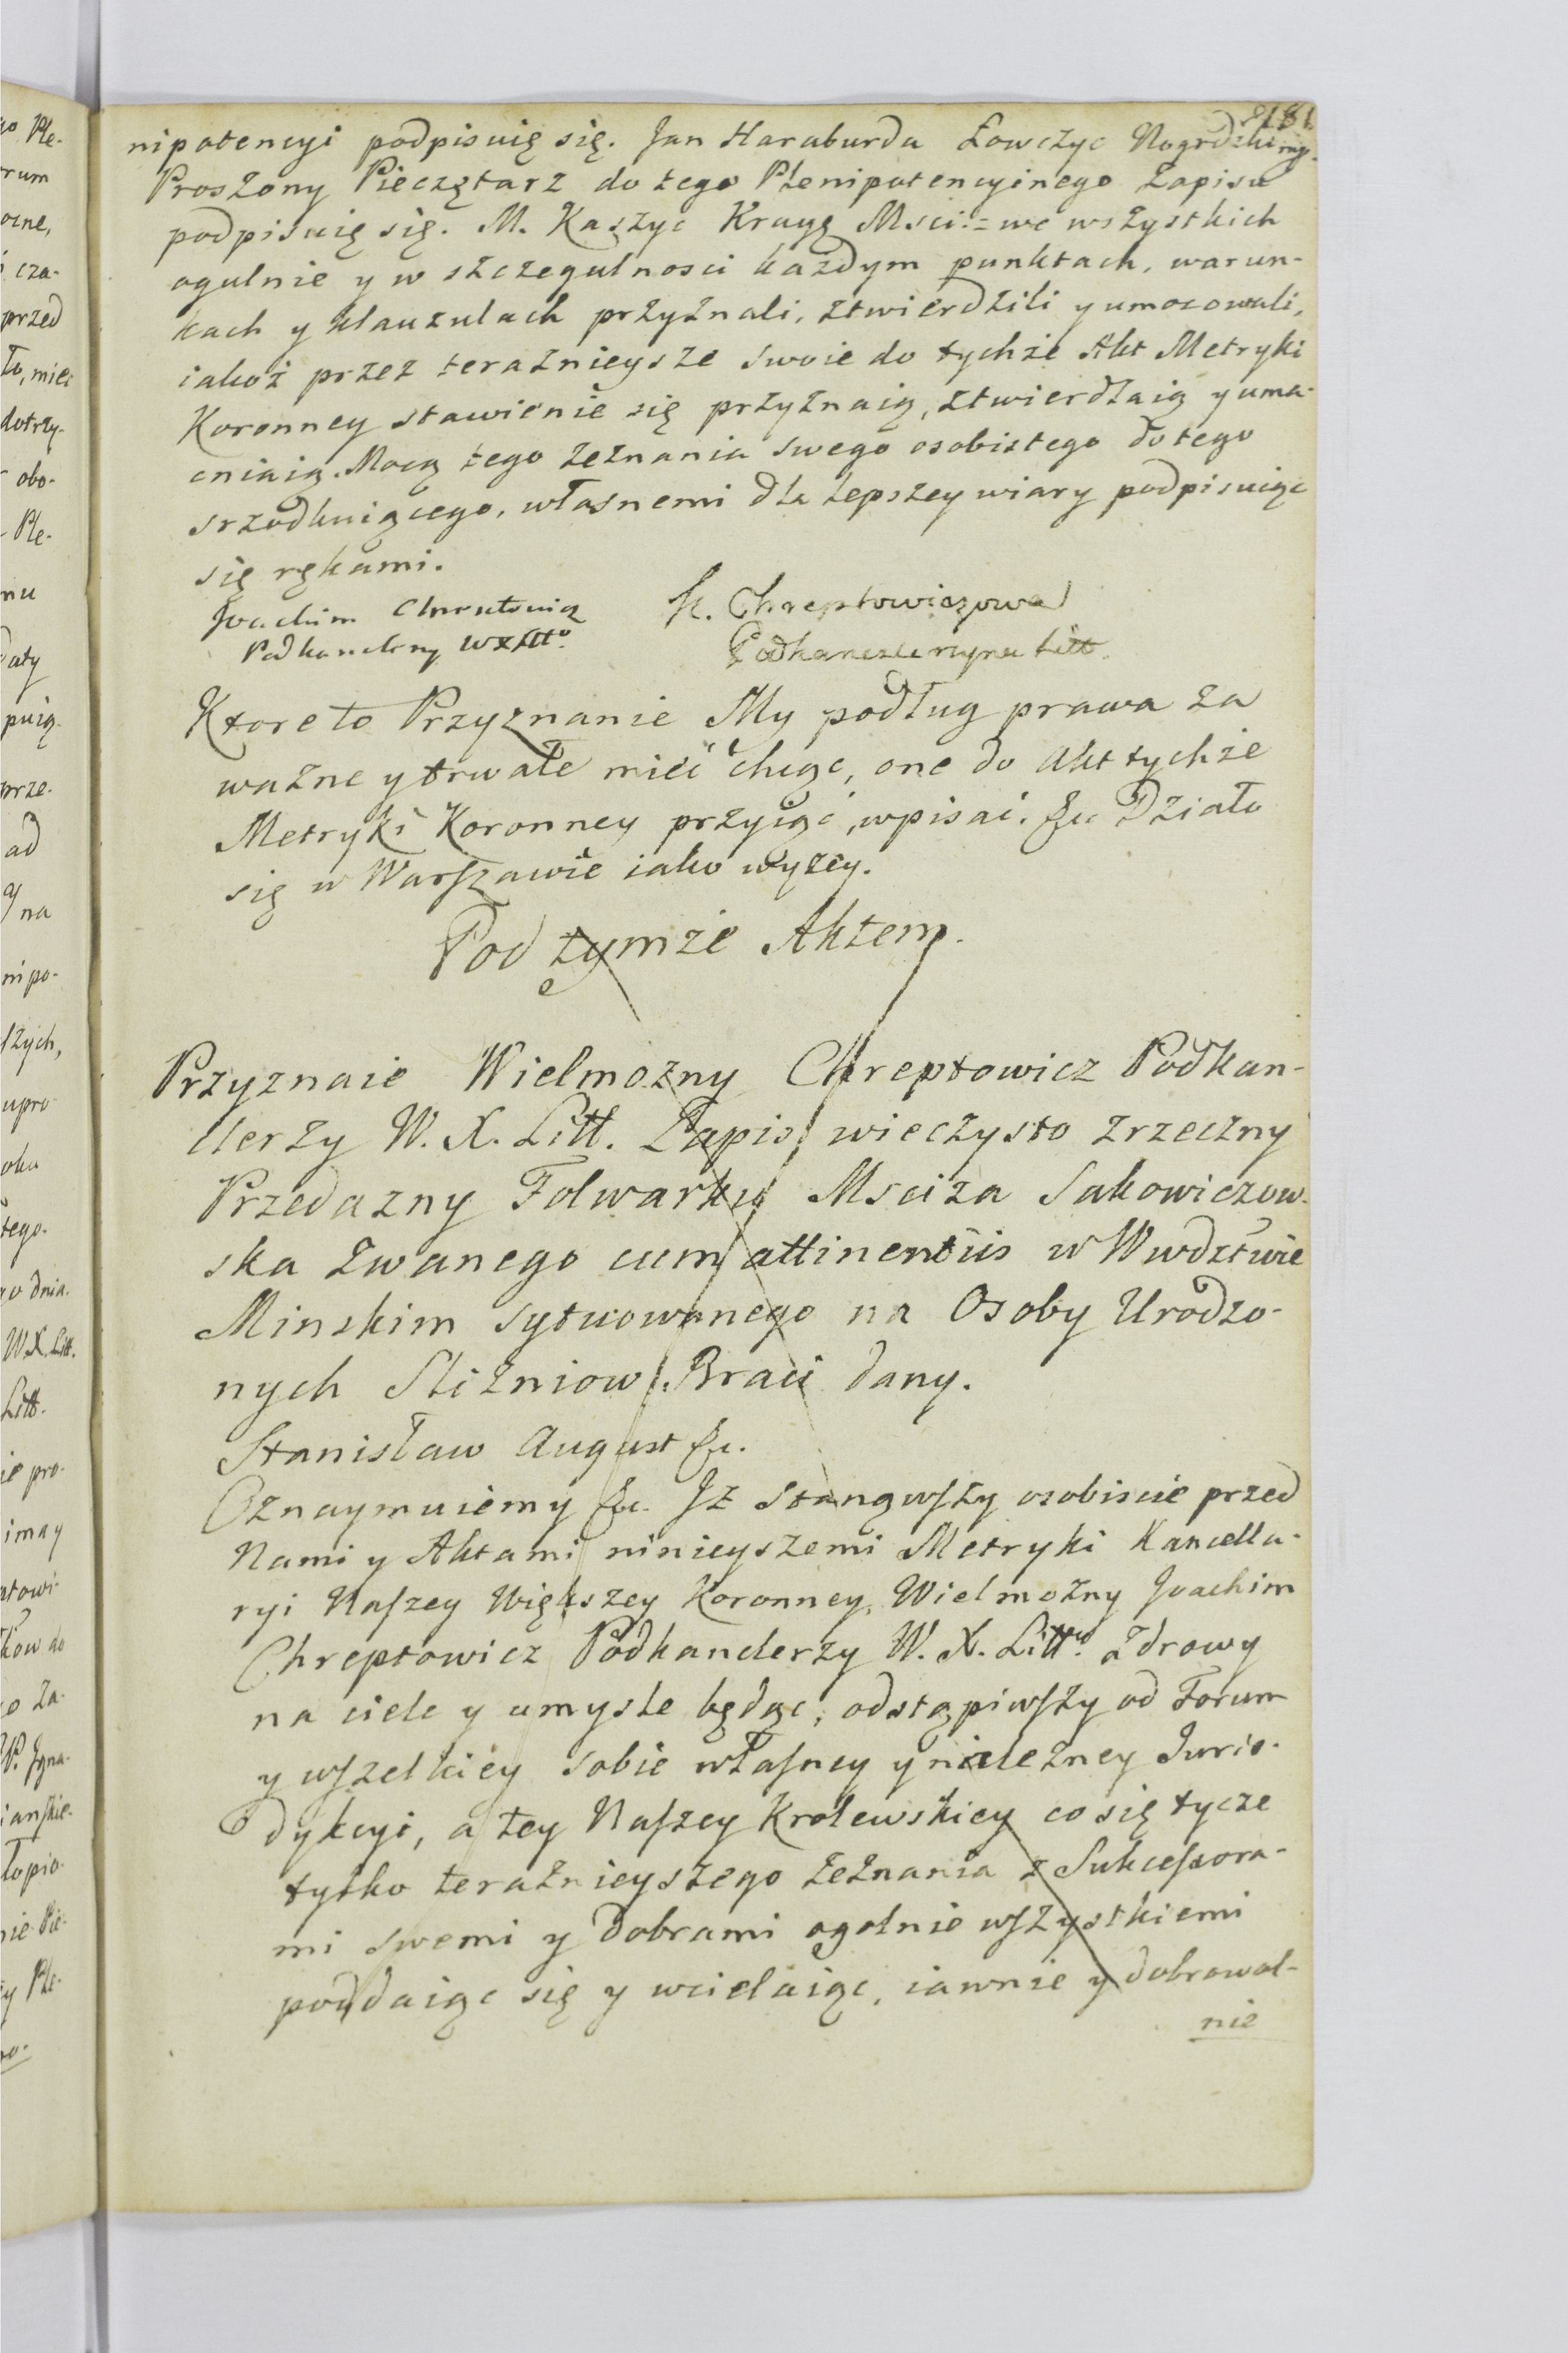 nipotencyi podpisuię się. Jan Haraburda Łowczyc Nogrdzki mp.
Proszony Pieczętarz do tego Plenipotencyinego Zapisu
podpisuię się. M. Kaszyc Krayg Msci:= we wszystkich
ogulnie y w szczegulnosci każdym punktach, warun-
kach y klauzulach przyznali, ztwierdzili y umocowali,
iakoż przez teraznieysze swoie do tychże Akt Metryki
Koronney stawienie się przyznaią, ztwierdzaią y uma-
cniaią. Mocą tego zeznania swego osobistego do tego
srzodkuiącego, własnemi dla lepszey wiary podpisuiąc
się rękami.
Joachim Chreptowicz
Podkanclerzy WXLitto.
K. Chreptowiczowa
Podkanclerzyna Litt.
Ktore to Przyznanie My podług prawa za
wazne y trwałe mieć chcąc, one do Akt tychże
Metryki Koronney przyiąć, wpisać. &c Działo
się w Warszawie iako wyżey.
Pod tymże Aktem.
Przyznaie Wielmożny Chreptowicz Podkan-
clerzy W. X. Litt. Zapis wieczysto zrzeczny
Przedazny Folwarku Msciza Sakowiczow-
ska zwanego cum attinentiis w Wwdztwie
Minskim sytuowanego na Osoby Urodzo-
nych Slizniow Braci dany.
Stanisław August &c.
Oznaymuiemy &c. Jż Stanąwszy osobiscie przed
Nami y Aktami ninieyszemi Metryki Kancella-
ryi Naszey Większey Koronney, Wielmożny Joachim
Chreptowicz Podkanclerzy W. X. Litto. zdrowy
na ciele y umysle będąc, odstąpiwszy od Forum
y wszelkiey sobie własney y nalezney Juris-
dykcyi, a tey Naszey Krolewskiey co się tycze
tylko teraznieyszego zeznania z Sukcessora-
mi swemi y dobrami ogolnie wszystkiemi
poddaiąc się y wcielaiąc, iawnie y dobrowol-
nie